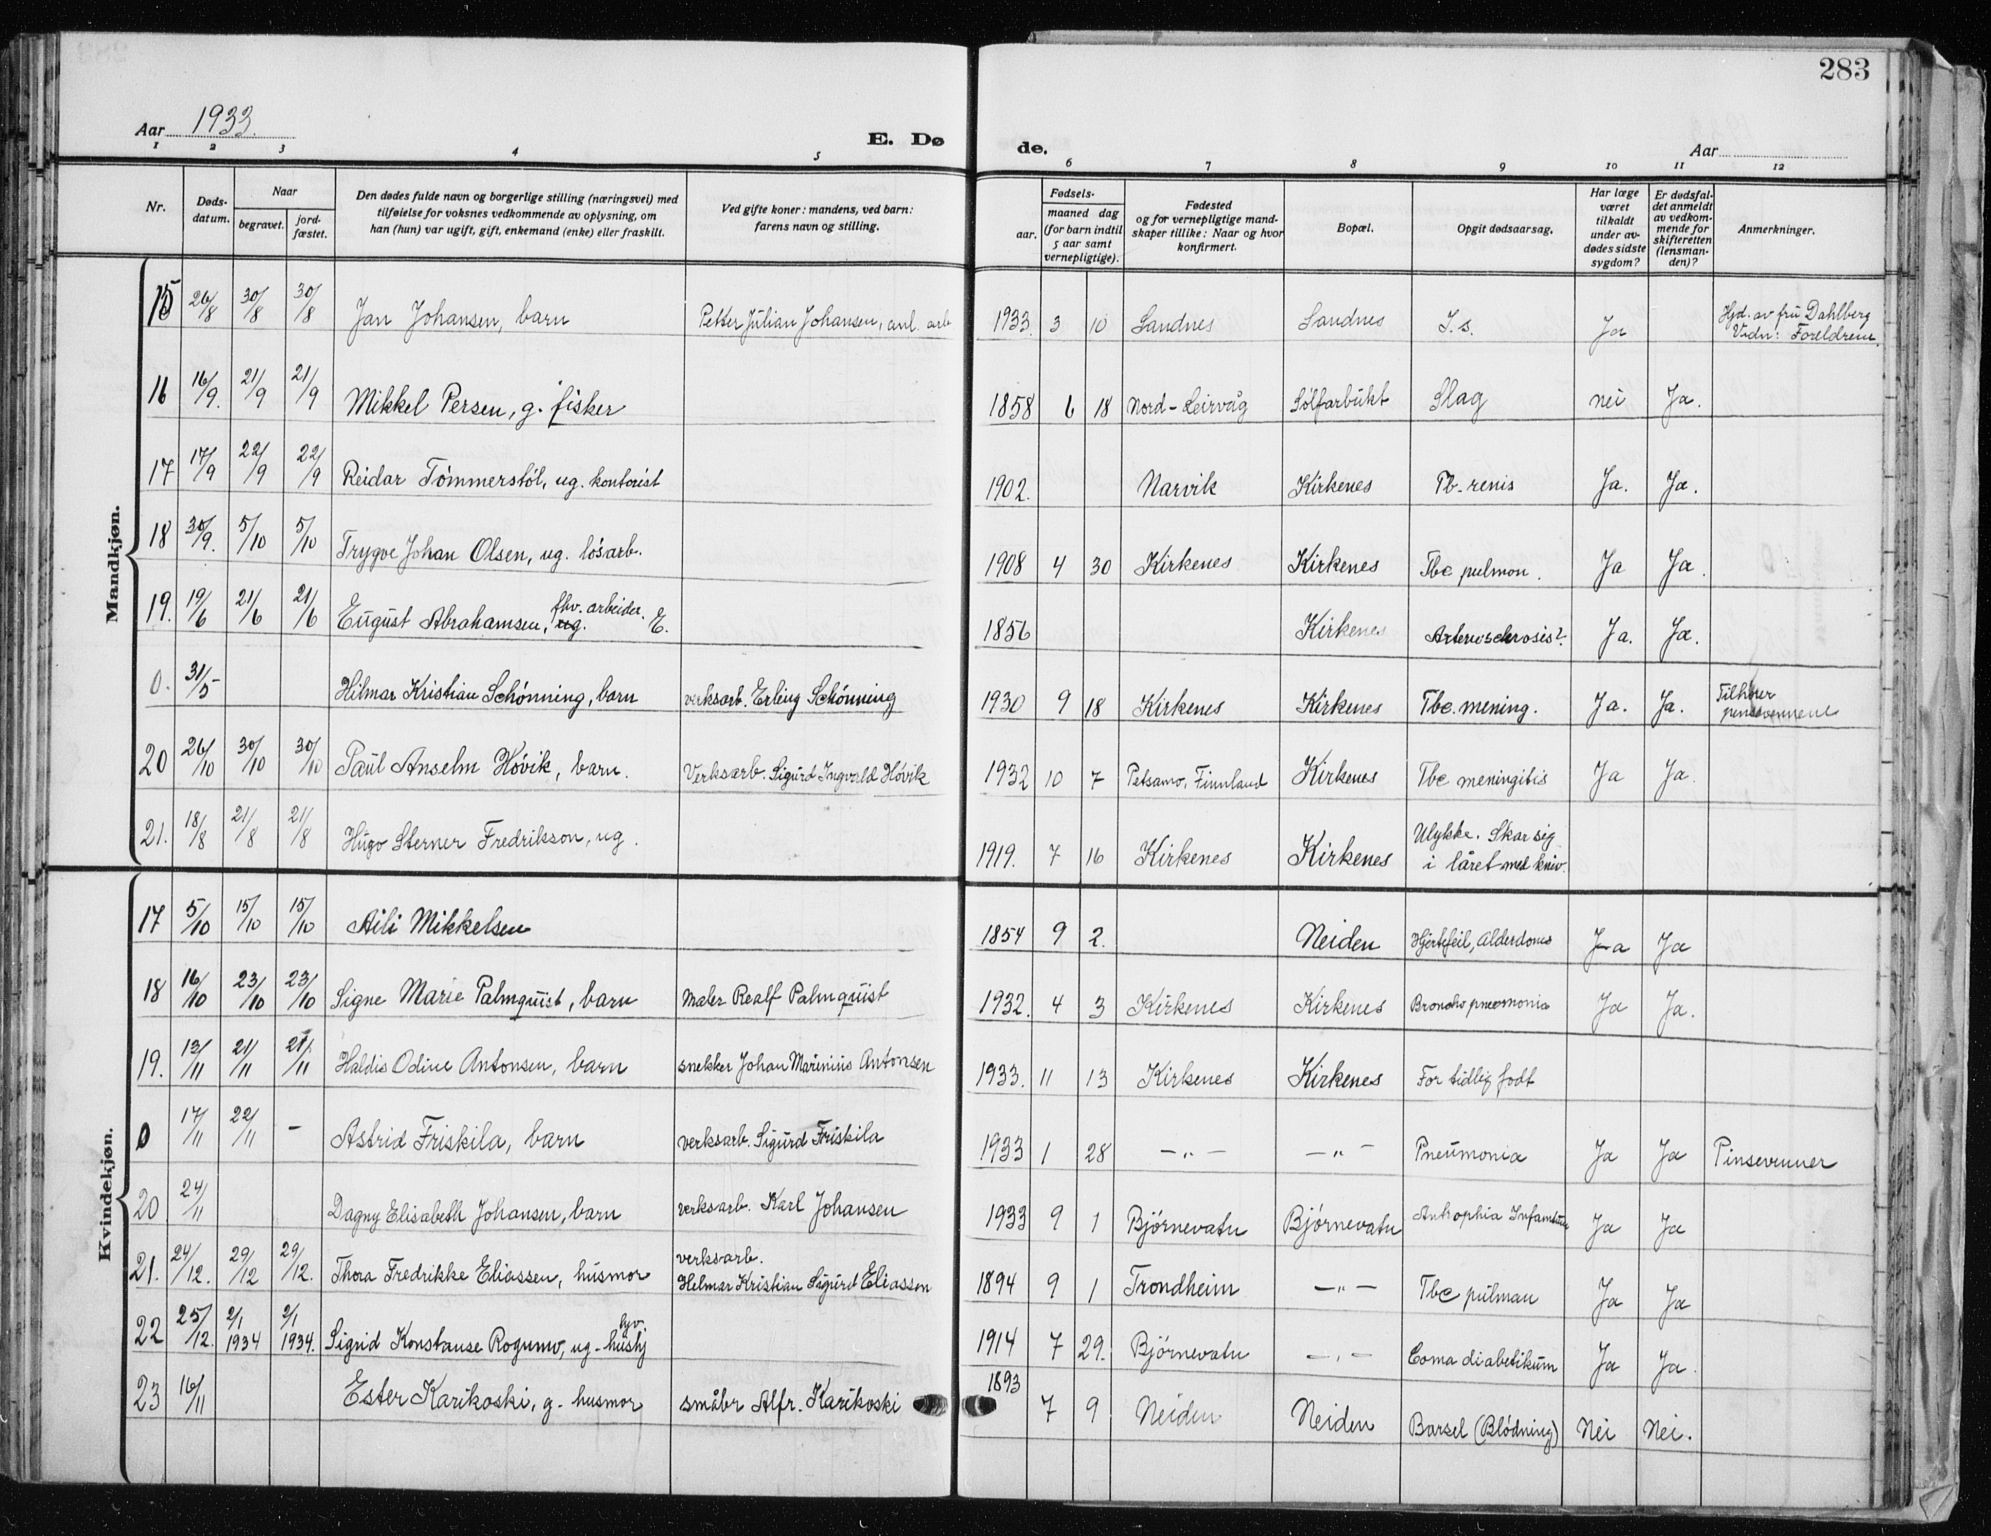 283
Aar 1933.
E. Dø
de.
Aar
1 2 3 4 5 6 7 8 9 10 11 12
Nr.
Døds-
datum.
Naar
begravet.
jord-
fæstet.
Den dødes fulde navn og borgerlige stilling (næringsvei) med
tilføielse for voksnes vedkommende av oplysning, om
han (hun) var ugift, gift, enkemand (enke) eller fraskilt.
Ved gifte koner: mandens, ved barn:
farens navn og stilling.
Fødsels-
aar.
maaned dag
(for barn indtil
5 aar samt
vernepligtige).
Fødested
og for vernepligtige mand-
skaper tillike: Naar og hvor
konfirmert.
Bopæl.
Opgit dødsaarsag.
Har læge
været
tilkaldt
under av-
dødes sidste
sygdom?
Er dødsfal-
det anmeldt
av vedkom-
mende for
skifteretten
(lensman-
den)?
Anmerkninger.
Mandkjøn.
15 26/8 30/8 30/8 Jan Johansen, barn Petter Julian Johansen, anl. arb 1933. 3 10 Sandnes Sandnes I.s. Ja Hjd. av fru Dahlberg
Vidn: Foreldrene.
16 16/9. 21/9 21/9 Mikkel Persen, g. fisker 1858 6 18 Nord-Leirvåg Sølfarbukt Slag nei Ja.
17 17/9 22/9 22/9 Reidar Tømmerstøl, ug. kontorist 1902. Narvik Kirkenes Tb. renis Ja. Ja.
18 30/9. 5/10 5/10 Trygve Johan Olsen, ug. løsarb. 1908 4 30 Kirkenes Kirkenes Tbc pulmon. Ja Ja.
19. 19/6 21/6 21/6 Eugust Abrahamsen, ug. fhv. arbeider. E. 1856 Kirkenes Arteriosclerosis? Ja. Ja.
0. 31/5 Hilmar Kristian Schønning, barn verksarb. Erling Schønning 1930 9 18 Kirkenes Kirkenes Tbc. mening. Ja. Ja. Tilhører
pinsevennene
20 26/10 30/10 30/10 Paul Anselm Høvik, barn. Verksarb. Sigurd Ingvald Høvik 1932 10 7 Petsamo, Finnland Kirkenes Tbc meningitis Ja Ja.
21. 18/8 21/8 21/8 Hugo Sterner Fredrikson, ug. 1919. 7 16 Kirkenes Kirkenes Ulykke. Skar sig
i låret med kniv.
Kvindekjøn.
17 5/10 15/10 15/10 Aili Mikkelsen 1854 9 2. Neiden Hjertefeil, Alderdoms Ja Ja
18 16/10 23/10 23/10 Signe Marie Palmquist, barn maler Realf Palmquist 1932. 4 3 Kirkenes Kirkenes Broncho pneomonia Ja Ja.
19. 13/11 21/11 21/11 Haldis Odine Antonsen, barn snekker Johan Marinius Antonsen 1933. 11 13 Kirkenes Kirkenes For tidlig født
0 17/11 22/11 - Astrid Friskila, barn verksarb. Sigurd Friskila 1933 1 28 -"- -"- Pneumonia Ja Ja Pinsevenner
20 24/11 Dagny Elisabeth Johansen, barn verksarb. Karl Johansen 1933 9 1 Bjørnevatn Bjørnevatn Ja Ja
21. 24/12. 29/12 29/12. Thora Fredrikke Eliassen, husmor verksarb.
Helmar Kristian Sigurd Eliassen 1894 9 1 Trondheim -"- Tbc pulman Ja Ja
22 25/12. 2/1 1934 2/1 1934. Sigrid Konstanse Rogumo, ug. hushj 1914 7 29. Bjørnevatn -"- Coma diabetikum Ja Ja.
23 16/11 Ester Karikoski, g. husmor småbr Alfr. Karikoski 1893 7 9 Neiden Neiden Barsel (Blødning) Nei Nei.